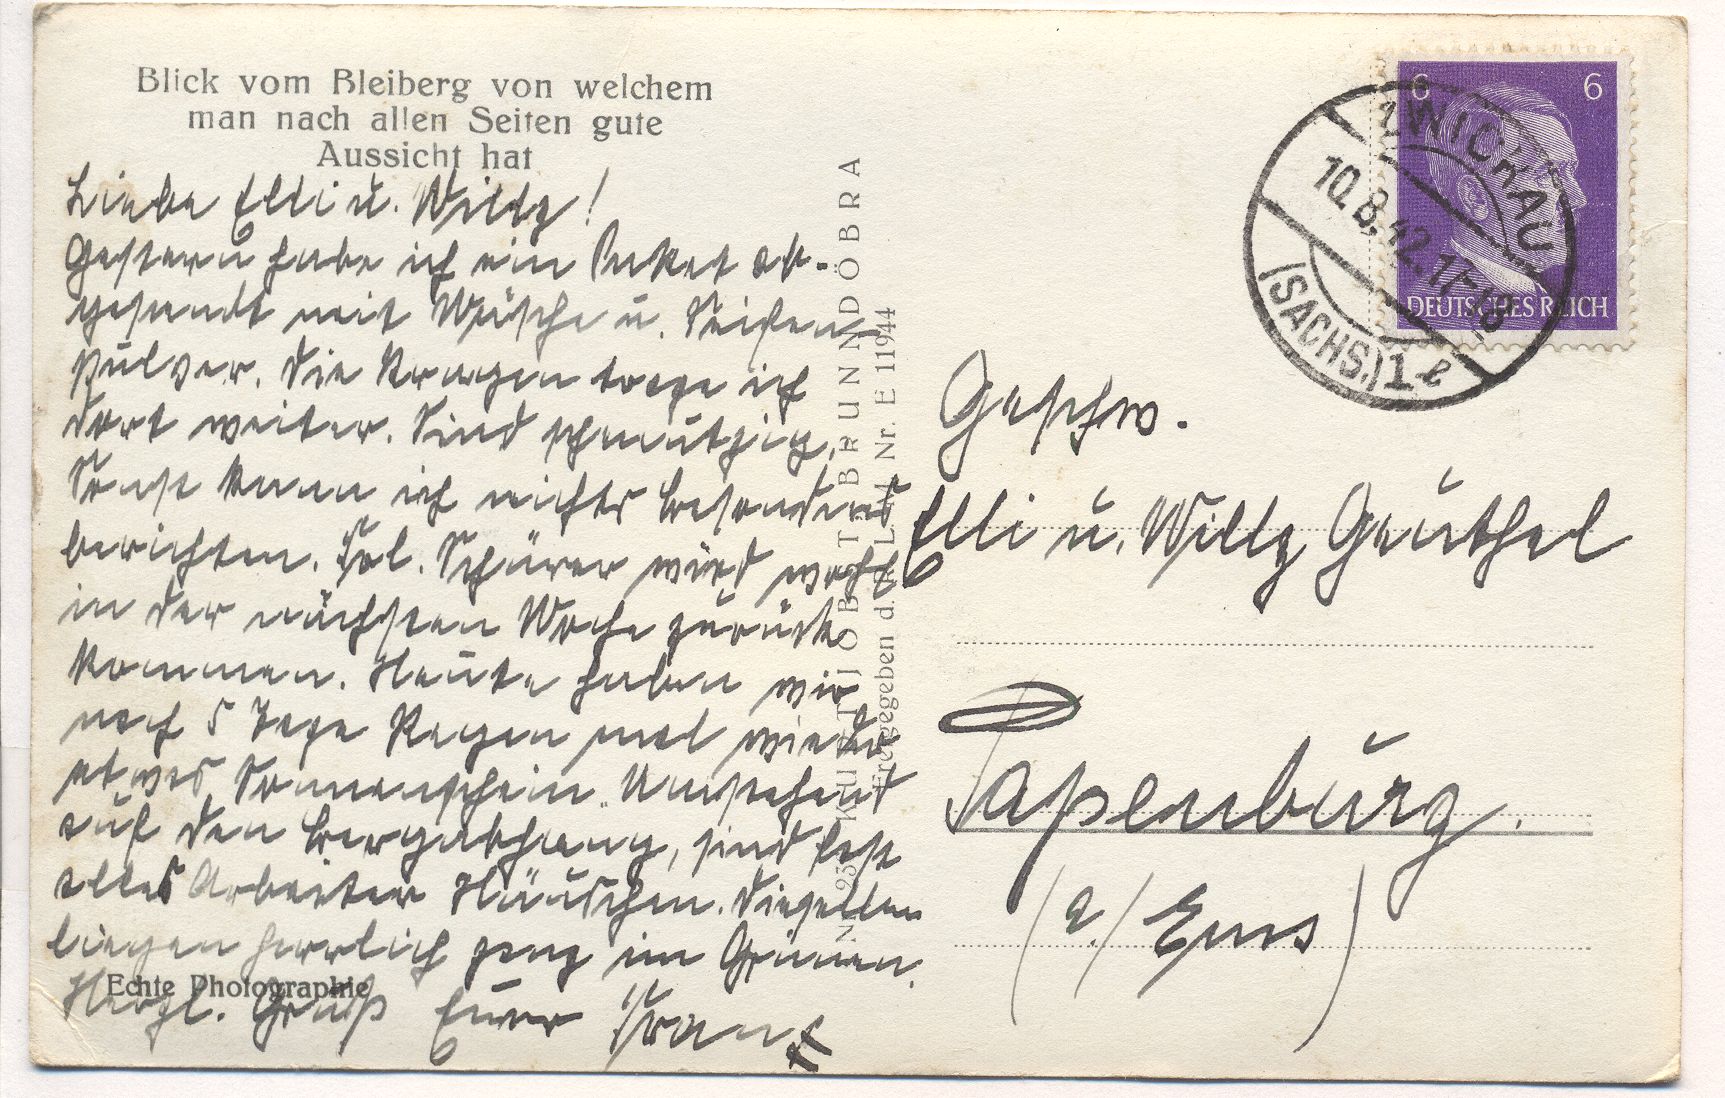 Blick vom Bleiberg von welchem
man nach allen Seiten gute
Aussicht hat
Liebe Elli u. Willy!
Gestern habe ich ein Paket ab-
gesandt mit Wäsche u. Seifen
pulver. Die Kragen trage ich
dort weiter. Sind schmutzig.
Sonst kann ich nichts besonderes
berichten. Frl. Schürer wird wohl
in der nächsten Woche zurück
kommen. Heute haben wir
nach 5 Tage Regen mal wieder
etwas Sonnenschein. Umstehend
auf den Bergabhang, sind fast
alles Arbeiter Häuschen. Dieselben
liegen herrlich ganz im Grünen.
Herzl. Gruß Euer Franz
Echte Photographie
KUTT BRUNNDÖBRA
gegeben d. Nr. E 11944
6 6
DEUTSCHES REICH
ZWICKAU
10.8.42.17-18
(SACHS.) 1 l
Geschw.
Elli u. Willy Geuthel
Papenburg.
(a./Ems)